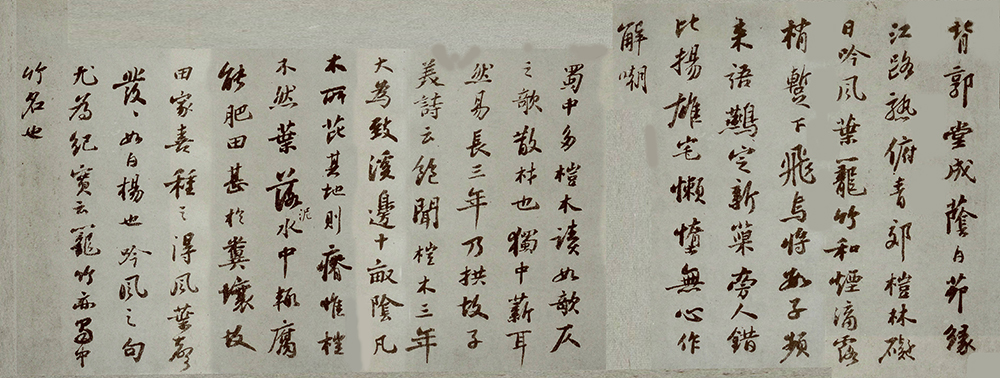 背郭堂成蔭白茆緣
江路熟俯青郊榿林礙
日吟風葉籠竹和煙滴露
梢暫下飛烏將數子頻
來語鷰定新巢旁人錯
比揚雄宅懶憜無心作
解嘲
蜀中多榿木讀如欹仄
之欹散材也獨中薪耳
然易長三年乃拱故子
美詩云飽聞榿木三年
大為致溪邊十畝陰凡
木所芘其地則瘠惟榿
不然葉落泥水中輒腐
能肥田甚於糞壤故
田家喜種之得風葉聲
發〻如白楊也吟風之句
尤為紀實云籠竹亦蜀中
竹名也